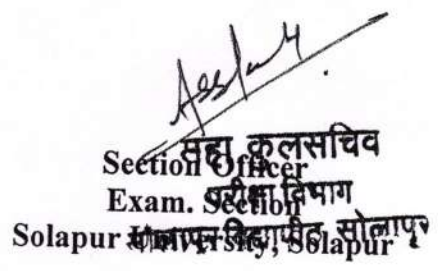 सहा कुलसचिव
Section Officer
परीक्षा विभाग
Exam. Section
सोलापूर विद्यापीठ, सोलापूर
Solapur University, Solapur